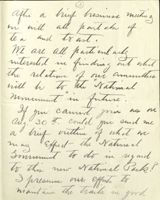 After a brief business meeting
we will all partake of
tea and toast.
We are all particularly
interested in finding out what
the relations of our committee
will be to the National
Monument in future.
If you cannot give us
Aug 30th could you send me
a brief outline of what we
may expect the National
Government to do in regard
to the new National Park?
I presume our effort to
maintain the trails in good